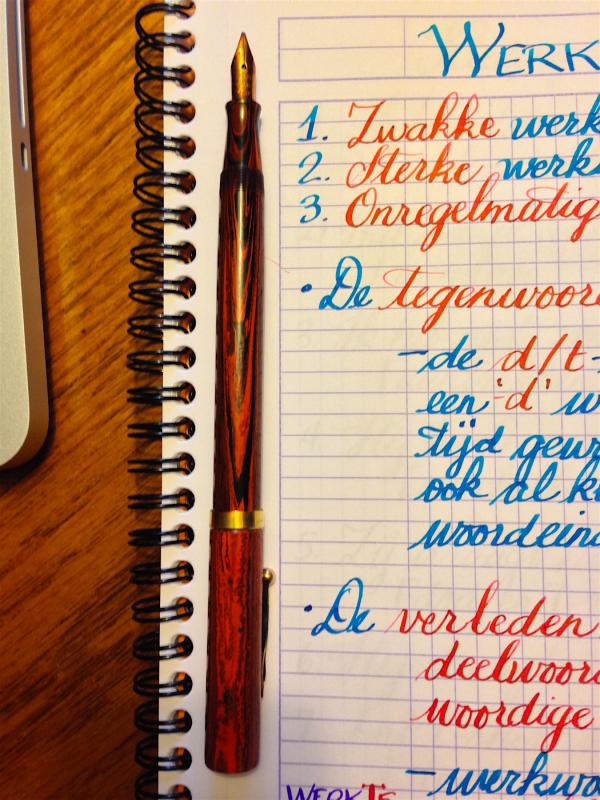 WERK
1. Zwakke werk
2. Sterke werk
3. Onregelmatig
• De tegenwoor
- de d/t-
een 'd' w
tijd gew
ook al k
woordein
• De verleden
deelwoor
woordige
- werkwo
WERKTS